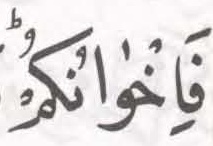 فَاِخْوٰانُكُمْ ؕ